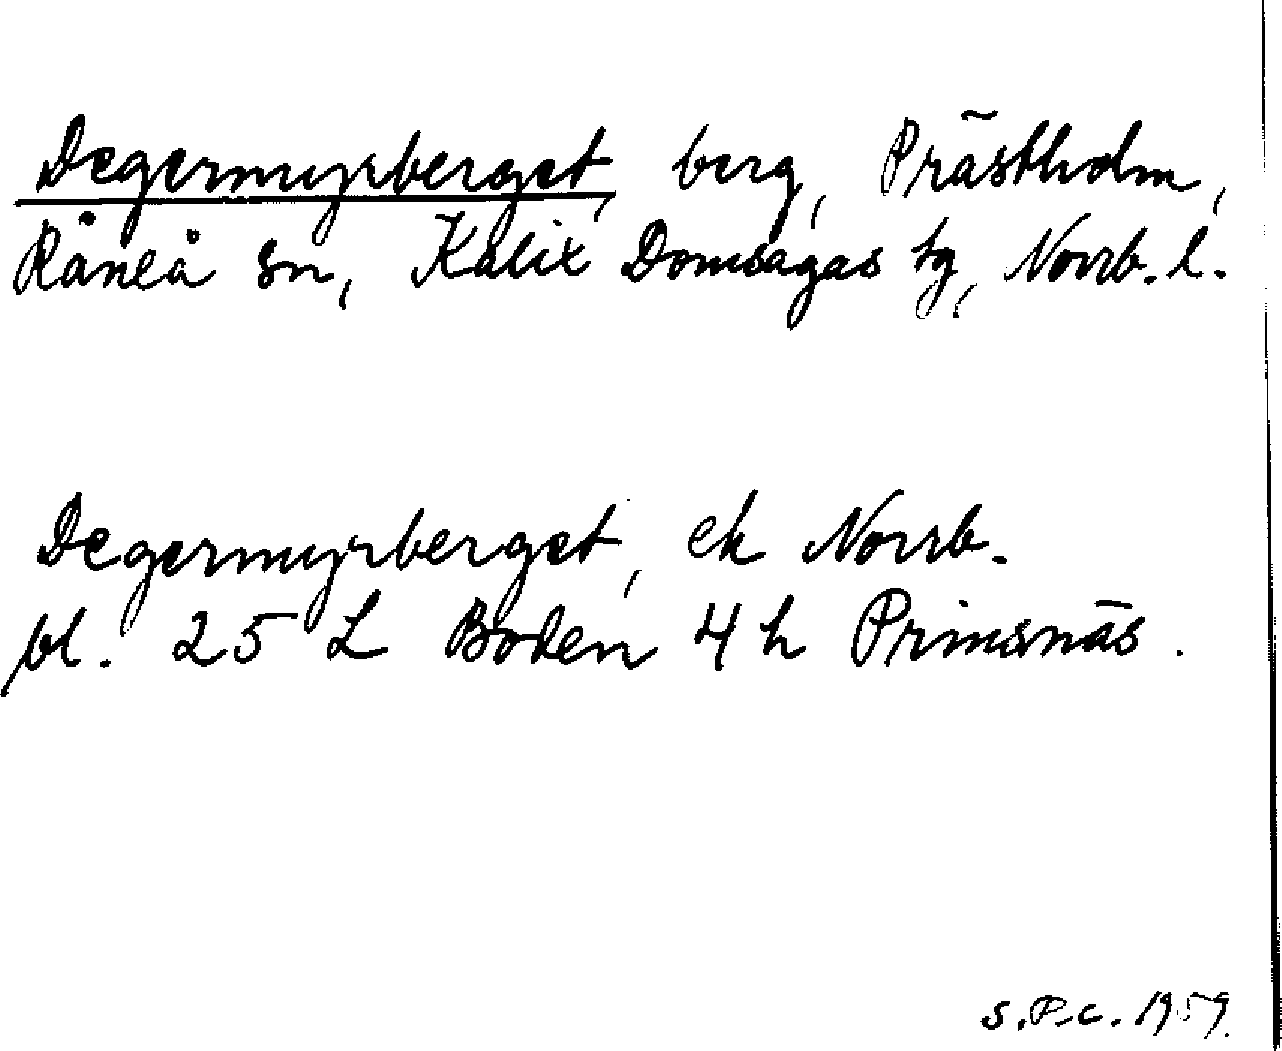 Degermyrberget, berg, Prästholm,
Råneå sn, Kalix Domsagas tg, Norrb. l.
Degermyrberget, ek Norrb.
bl. 25 L Boden 4 h Prinsnäs.
S.P.c. 1959.